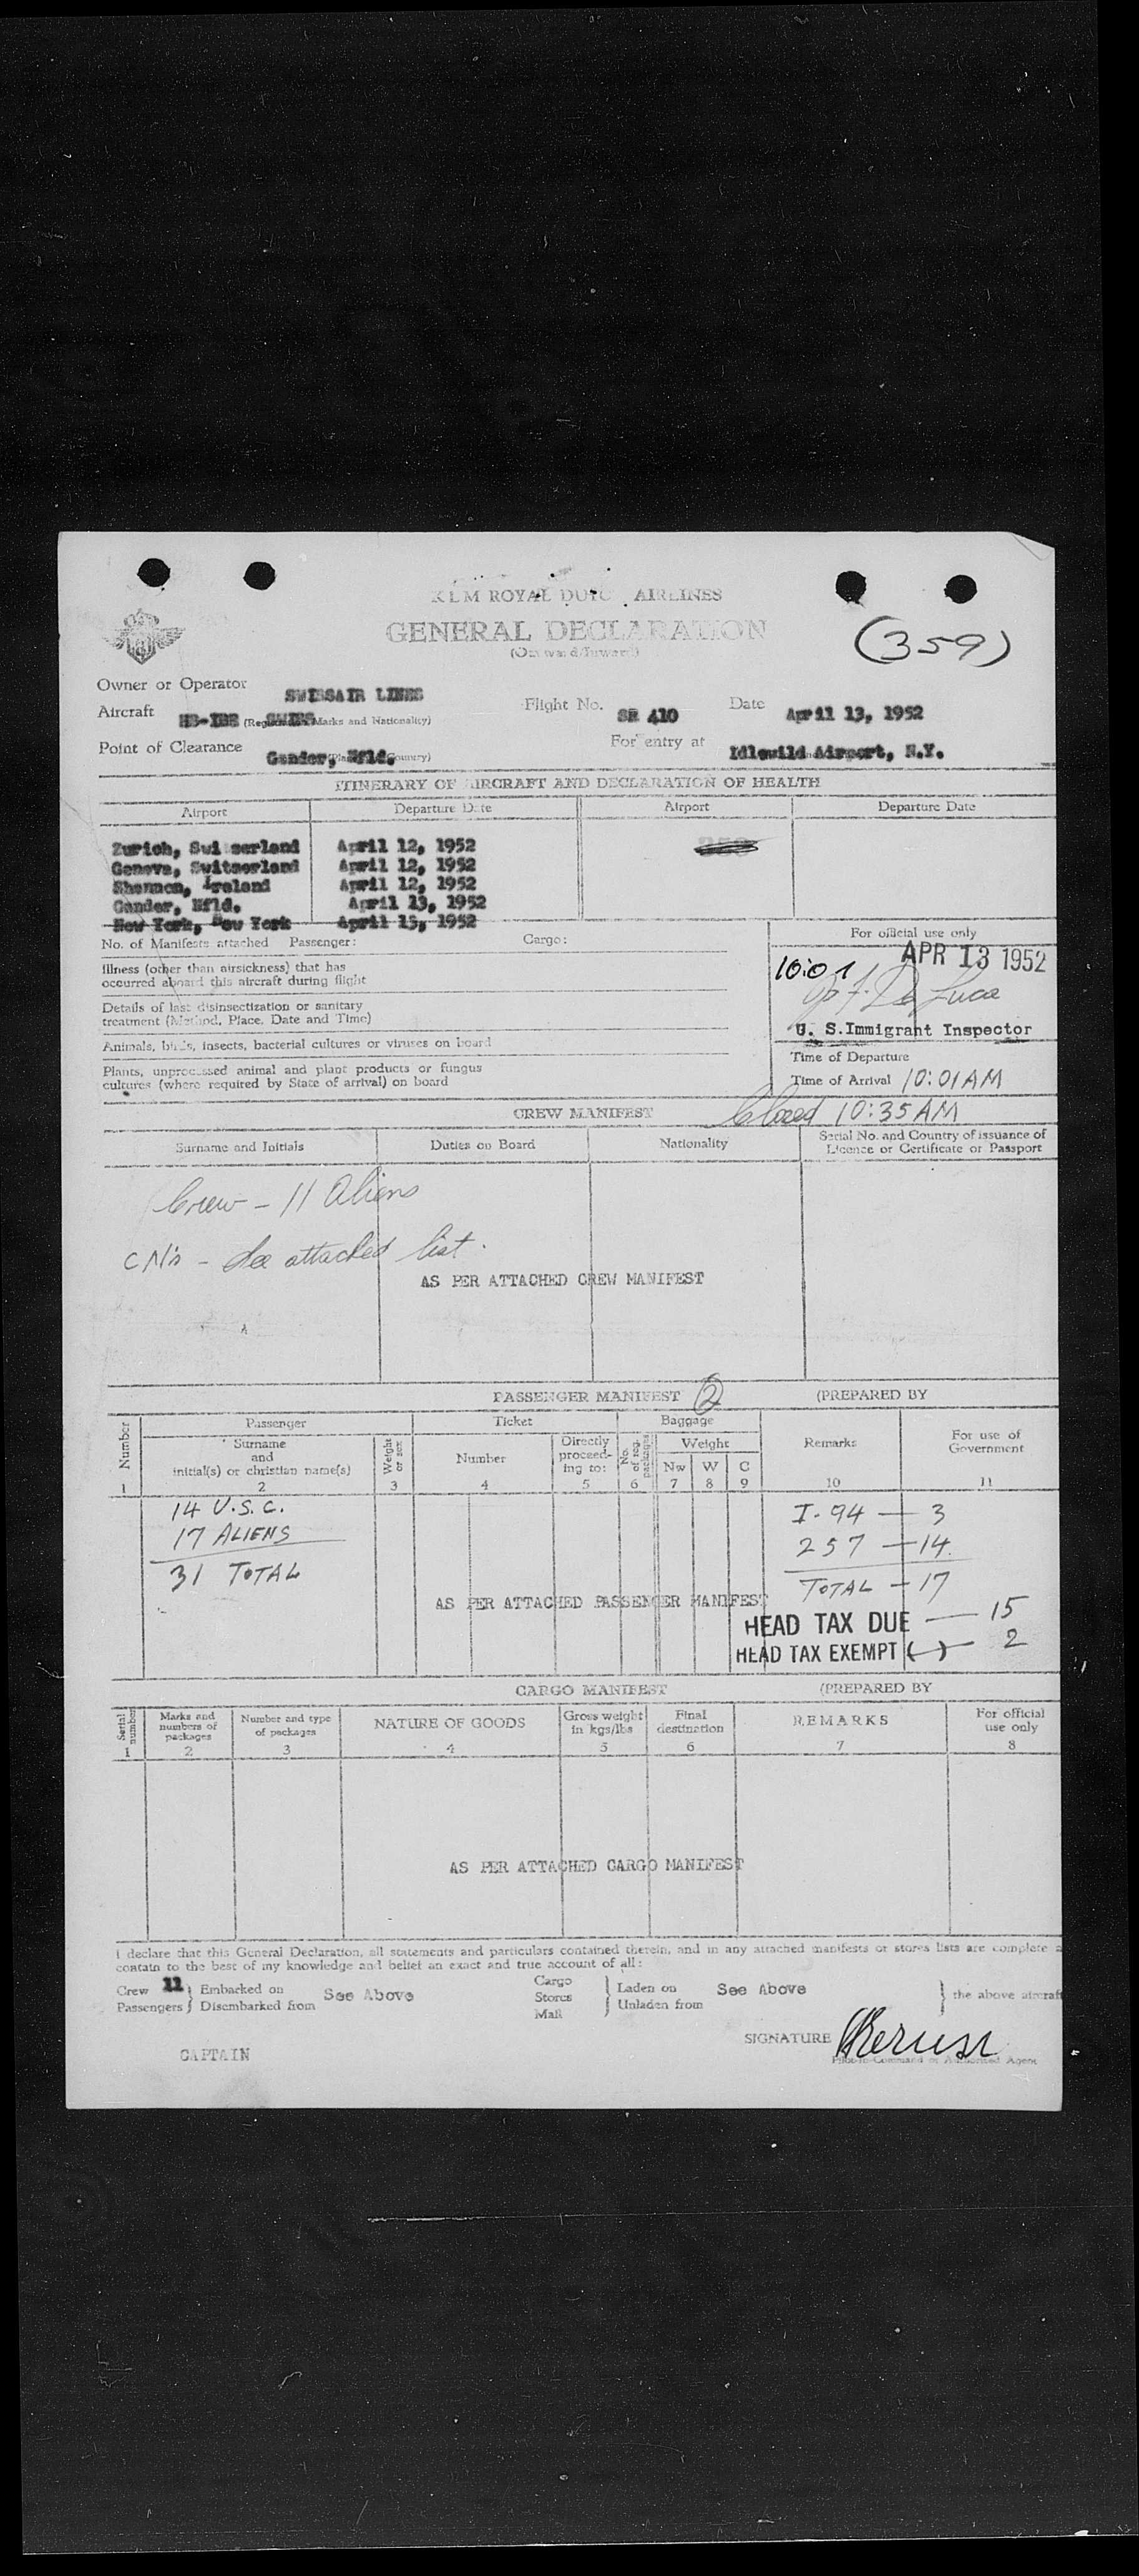 KLM ROYAL DUTC AIRLINES
GENERAL DECLARATION
(Outward/Inward)
(359)
Owner or Operator SWISSAIR LINES
Aircraft (Registration Marks and Nationality) SWISS Flight No. SR 410 Date April 13, 1952
Point of Clearance Gander, Nfld. (Place and Country) For entry at Idlewild Airport, N.Y.
ITINERARY OF AIRCRAFT AND DECLARATION OF HEALTH
Airport Departure Date Airport Departure Date
Zurich, Switzerland April 12, 1952
Geneva, Switzerland April 12, 1952
Shannon, Ireland April 12, 1952
Gander, Nfld. April 13, 1952
New York, New York April 13, 1952
No. of Manifests attached Passenger: Cargo:
For official use only
APR 13 1952
10:01
Illness (other than airsickness) that has
occurred aboard this aircraft during flight
De Luca
Details of last disinsectization or sanitary
treatment (Method, Place, Date and Time)
U. S. Immigrant Inspector
Animals, birds, insects, bacterial cultures or viruses on board
Time of Departure
Plants, unprocessed animal and plant products or fungus
cultures (where required by State of arrival) on board
Time of Arrival 10:01 AM
CREW MANIFEST Closed 10:35 AM
Surname and Initials Duties on Board Nationality Serial No. and Country of issuance of
Licence or Certificate or Passport
Crew - 11 Aliens
CN's - See attached list.
AS PER ATTACHED CREW MANIFEST
PASSENGER MANIFEST 2 (PREPARED BY
Number Passenger Ticket Baggage Remarks For use of
Government
Surname
and
initial(s) or christian name(s) Weight
or sex Number Directly
proceed-
ing to: No.
of reg.
packages Weight
Nw W C
1 2 3 4 5 6 7 8 9 10 11
14 U.S.C. I-94 — 3
17 ALIENS 257 — 14
31 TOTAL TOTAL — 17
AS PER ATTACHED PASSENGER MANIFEST
HEAD TAX DUE — 15
HEAD TAX EXEMPT ( ) — 2
CARGO MANIFEST (PREPARED BY
Serial
number Marks and
numbers of
packages Number and type
of packages NATURE OF GOODS Gross weight
in kgs/lbs Final
destination REMARKS For official
use only
1 2 3 4 5 6 7 8
AS PER ATTACHED CARGO MANIFEST
I declare that this General Declaration, all statements and particulars contained therein, and in any attached manifests or stores lists are complete a
contain to the best of my knowledge and belief an exact and true account of all:
Crew 11 Embacked on See Above Cargo Laden on See Above the above aircraft
Passengers Disembarked from Stores Unladen from
Mail
SIGNATURE
CAPTAIN
Pilot-in-Command or Authorised Agent